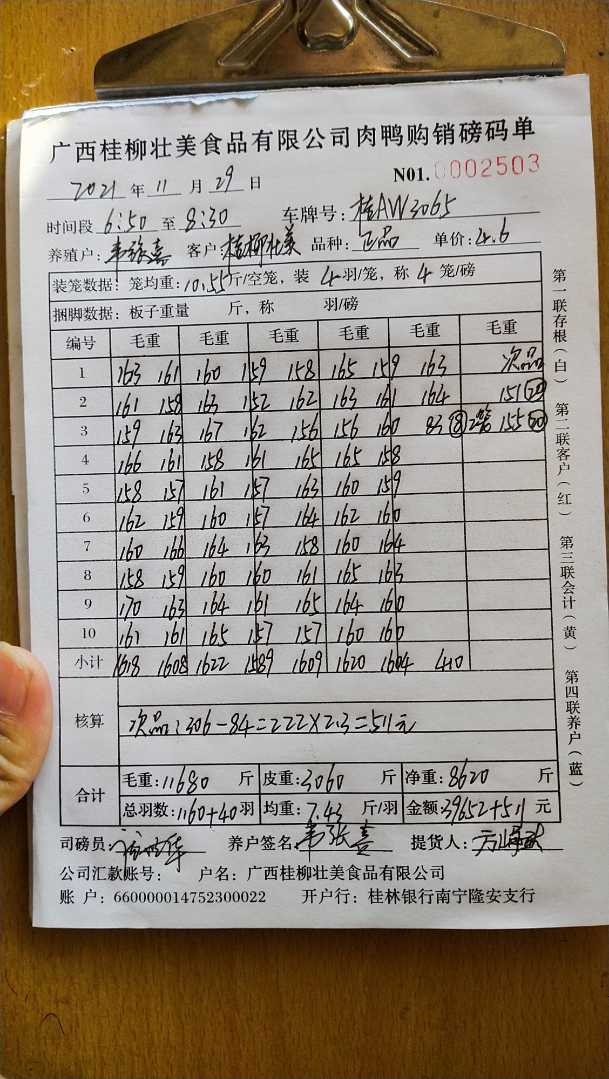 广西桂柳壮美食品有限公司肉鸭购销磅码单
2021 年 11 月 29 日 N01.0002503
时间段 6:50 至 8:30 车牌号:桂AW3065
养殖户:韦张喜 客户:桂柳壮美 品种:正品 单价:4.6
装笼数据: 笼均重:10.55斤/空笼, 装 4 羽/笼, 称 4 笼/磅
捆脚数据: 板子重量 斤, 称 羽/磅
编号 毛重 毛重 毛重 毛重 毛重 毛重
1 163 161 160 159 158 165 159 163 次品
2 161 158 163 152 162 163 161 164 151 20
3 159 163 167 162 156 156 160 83 8 2笼 155 20
4 166 161 158 161 165 165 158
5 158 157 161 157 163 160 159
6 162 159 160 157 164 162 160
7 160 166 164 163 158 160 164
8 158 159 160 160 161 165 163
9 170 163 164 161 165 164 160
10 161 161 165 157 157 160 160
小计 1618 1608 1622 1589 1609 1620 1604 410
核算 次品:306-84=222×2.3=511元
合计 毛重:11680 斤 皮重:3060 斤 净重:8620 斤
总羽数:1160+40羽 均重:7.43 斤/羽 金额:39652+511 元
司磅员: 养户签名:韦张喜 提货人:
公司汇款账号: 户名:广西桂柳壮美食品有限公司
账 户:660000014752300022 开户行:桂林银行南宁隆安支行
第一联存根(白) 第二联客户(红) 第三联会计(黄) 第四联养户(蓝)